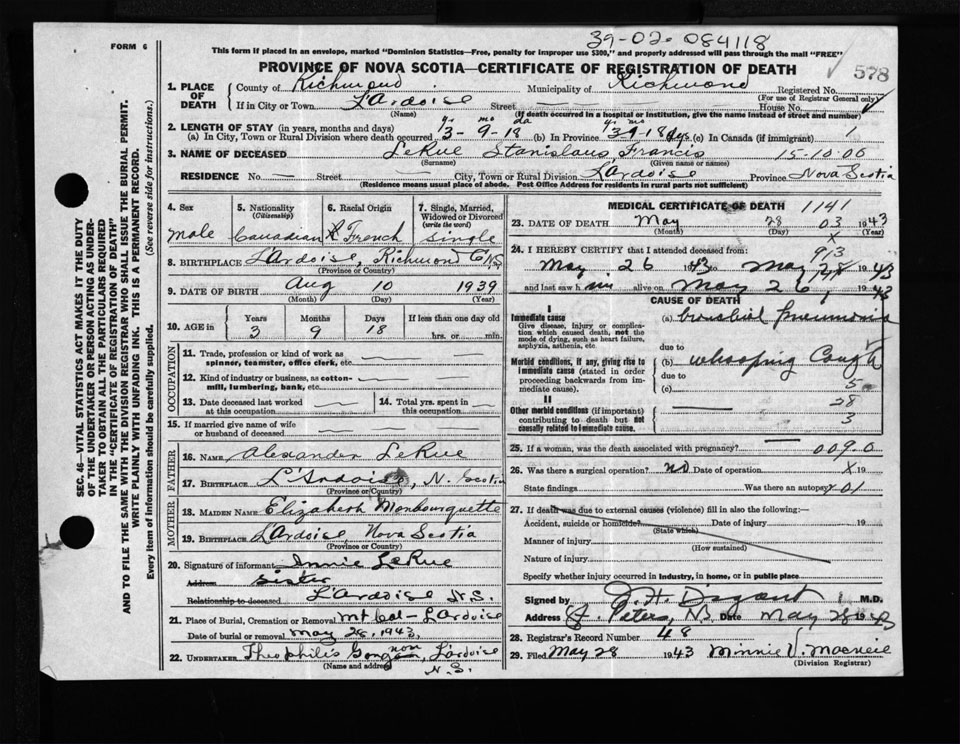 39-02-084118
FORM 6
This form if placed in an envelope, marked "Dominion Statistics—Free, penalty for improper use $300," and properly addressed will pass through the mail "FREE"
PROVINCE OF NOVA SCOTIA—CERTIFICATE OF REGISTRATION OF DEATH
578
1. PLACE OF DEATH
County of Richmond Municipality of Richmond Registered No.
(For use of Registrar General only)
If in City or Town L'Ardoise Street House No.
(Name) (If death occurred in a hospital or institution, give the name instead of street and number)
2. LENGTH OF STAY (in years, months and days)
yrs mo da
(a) In City, Town or Rural Division where death occurred 3-9-18 (b) In Province 3-9-18 dys. (c) In Canada (if immigrant) 1
3. NAME OF DECEASED LeRue Stanislaus Francis 15-10-06
(Surname) (Given name or names)
RESIDENCE No. — Street — City, Town or Rural Division L'Ardoise Province Nova Scotia
(Residence means usual place of abode. Post Office Address for residents in rural parts not sufficient)
4. Sex male
5. Nationality (Citizenship) Canadian
6. Racial Origin French
7. Single, Married, Widowed or Divorced (write the word) Single
8. BIRTHPLACE L'Ardoise, Richmond Co NS
(Province or Country)
9. DATE OF BIRTH Aug 10 1939
(Month) (Day) (Year)
10. AGE in Years Months Days If less than one day old
3 9 18 hrs. or min.
OCCUPATION
11. Trade, profession or kind of work as spinner, teamster, office clerk, etc. —
12. Kind of industry or business, as cotton-mill, lumbering, bank, etc. —
13. Date deceased last worked at this occupation —
14. Total yrs. spent in this occupation —
15. If married give name of wife or husband of deceased
FATHER
16. NAME Alexander LeRue
17. BIRTHPLACE L'Ardoise, N. Scotia
(Province or Country)
MOTHER
18. MAIDEN NAME Elizabeth Monbourquette
19. BIRTHPLACE L'Ardoise Nova Scotia
(Province or Country)
20. Signature of informant Innie LeRue
Address Sister
Relationship to deceased L'Ardoise N.S.
21. Place of Burial, Cremation or Removal Mt Cal- L'Ardoise
Date of burial or removal May 28, 1943,
22. UNDERTAKER Theophilis L'Ardoise
(Name and address) N.S.
MEDICAL CERTIFICATE OF DEATH 1141
23. DATE OF DEATH May 28 03 1943
(Month) (Day) (Year)
24. I HEREBY CERTIFY that I attended deceased from:
May 26 1943 to May 28 1943
and last saw him alive on May 26, 1943
CAUSE OF DEATH
I
Immediate cause
Give disease, injury or complication which caused death, not the mode of dying, such as heart failure, asphyxia, asthenia, etc.
(a) bronchial pneumonia
due to
Morbid conditions, if any, giving rise to immediate cause (stated in order proceeding backwards from immediate cause).
(b) whooping Cough
due to
(c) 5
II
Other morbid conditions (if important) contributing to death but not causally related to immediate cause.
28
3
25. If a woman, was the death associated with pregnancy? 009.0
26. Was there a surgical operation? no Date of operation X 19
State findings Was there an autopsy? 01
27. If death was due to external causes (violence) fill in also the following:—
Accident, suicide or homicide? Date of injury 19
(State which)
Manner of injury
(How sustained)
Nature of injury
Specify whether injury occurred in industry, in home, or in public place
Signed by M.D.
Address St. Peters, NS Date May 28 1943
28. Registrar's Record Number 48
29. Filed May 28 1943 Minnie V. Macneil
(Division Registrar)
SEC. 46—VITAL STATISTICS ACT MAKES IT THE DUTY
OF THE UNDERTAKER OR PERSON ACTING AS UNDER-
TAKER TO OBTAIN ALL THE PARTICULARS REQUIRED
IN THE "CERTIFICATE OF REGISTRATION OF DEATH"
AND TO FILE THE SAME WITH THE DIVISION REGISTRAR WHO SHALL ISSUE THE BURIAL PERMIT.
WRITE PLAINLY WITH UNFADING INK. THIS IS A PERMANENT RECORD.
Every item of information should be carefully supplied. (See reverse side for instructions.)